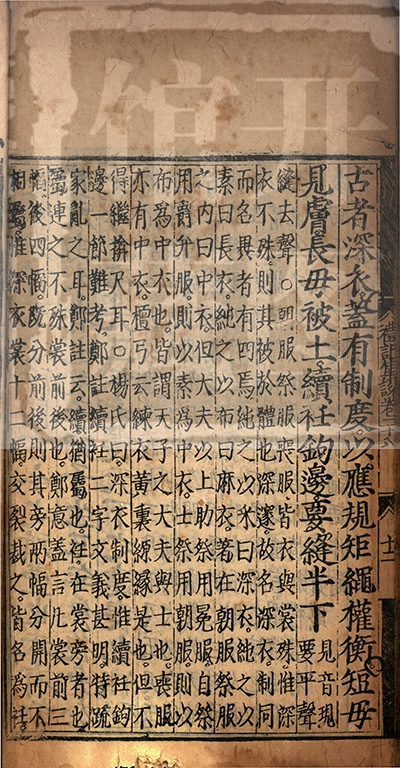 古者深衣蓋有制度以應規矩繩權衡短毋
見膚長毋被土續衽鉤邊要縫半下
見音現
要平聲
縫去聲○朝服祭服喪服皆衣與裳殊惟深
衣不殊則其被於體也深邃故名深衣制同
而名異者有四焉純之以采曰深衣純之以
素曰長衣純之以布曰麻衣著在朝服祭服
之內曰中衣但大夫以上助祭用冕服自祭
用爵弁服則以素為中衣士祭用朝服則以
布為中衣也皆謂天子之大夫與士也喪服
亦有中衣檀弓云練衣黃裏縓緣是也但不
得繼揜尺耳○楊氏曰深衣制度惟續衽鉤
邊一節難考鄭註續衽二字文義甚明特疏
家亂之耳鄭註云續猶屬也衽在裳旁者也
屬連之不殊裳前後也鄭意蓋言凡裳前三
幅後四幅旣分前後則其旁兩幅分開而不
相屬惟深衣裳十二幅交裂裁之皆名為衽
禮記集說卷
十二